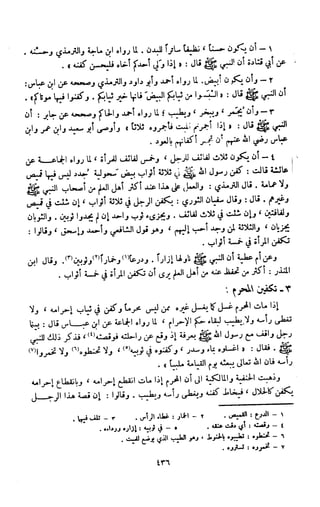 ١ - أن يكون حسناً ، نظيفاً ساتراً للبدن ، لما رواه ابن ماجة والترمذي وحسنه .
عن أبي قتادة أن النبي ﷺ قال : « إذا ولي أحدكم أخاه فليحسن كفنه » .
٢ - وأن يكون أبيض . لما رواه أحمد وأبو داود والترمذي وصححه عن ابن عباس:
أن النبي ﷺ قال : « البسوا من ثيابكم البيض فانها خير ثيابكم . وكفنوا فيها موتاكم » .
٣ - وأن يجمر ، ويبخر ، ويطيب ؛ لما رواه أحمد والحاكم وصححه عن جابر : أن
النبي ﷺ قال : « إذا أجمرتم الميت فأجمروه ثلاثاً » وأوصى أبو سعيد وابن عمر وابن
عباس رضي الله عنهم أن تجمر أكفانهم بالعود .
٤ - أن يكون ثلاث لفائف للرجل ، وخمس لفائف للمرأة ، لما رواه الجماعة عن
عائشة قالت : كفن رسول الله ﷺ في ثلاثة أثواب بيض سحولية جدد ليس فيها قميص
ولا عمامة . قال الترمذي : والعمل على هذا عند أكثر أهل العلم من أصحاب النبي ﷺ
وغيرهم . قال : وقال سفيان الثوري : يكفن الرجل في ثلاثة أثواب ، إن شئت في قميص
ولفافتين ، وإن شئت في ثلاث لفائف . ويجزىء ثوب واحد إن لم يجدوا ثوبين . والثوبان
يجزيان ، والثلاثة لمن وجد أحب إليهم ، وهو قول الشافعي وأحمد وإسحق ، وقالوا :
تكفن المرأة في خمسة أثواب .
وعن أم عطية أن النبي ﷺ ناولها إزاراً . ودرعاً(١) وخماراً(٢) وثوبين(٣) . وقال ابن
المنذر : أكثر من نحفظ عنه من أهل العلم يرى أن تكفن المرأة في خمسة أثواب .
٣ - تكفين المحرم :
إذا مات المحرم غسل كما يغسل غيره ممن ليس محرماً وكفن في ثياب إحرامه ، ولا
تغطى رأسه ولا يطيب لبقاء حكم الإحرام ، لما رواه الجماعة عن ابن عباس قال : بينما
رجل واقف مع رسول الله ﷺ بعرفة إذ وقع عن راحلته فوقصته(٤) ، فذكر ذلك للنبي
ﷺ . فقال : « اغسلوه بماء وسدر ، وكفنوه في ثوبيه(٥) ، ولا تحنطوه(٦) ولا تخمروا(٧)
رأسه فان الله تعالى يبعثه يوم القيامة ملبياً » .
وذهبت الحنفية والمالكية الى أن المحرم إذا مات انقطع إحرامه ، وبانقطاع إحرامه
يكفن كالحلال ، فيخاط كفنه ويغطى رأسه ويطيب . وقالوا : إن قصة هذا الرجل
١ - الدرع : القميص . ٢ - الخمار : غطاء الرأس . ٣ - تلف فيها .
٤ - وقصته : أي دقت عنقه . ٥ - في ثوبيه : إزاره ورداءه .
٦ - تحنطوه : تطيبوه بالحنوط ، وهو الطيب الذي يوضع للميت .
٧ - تخمروه : تستروه .
٤٣٦